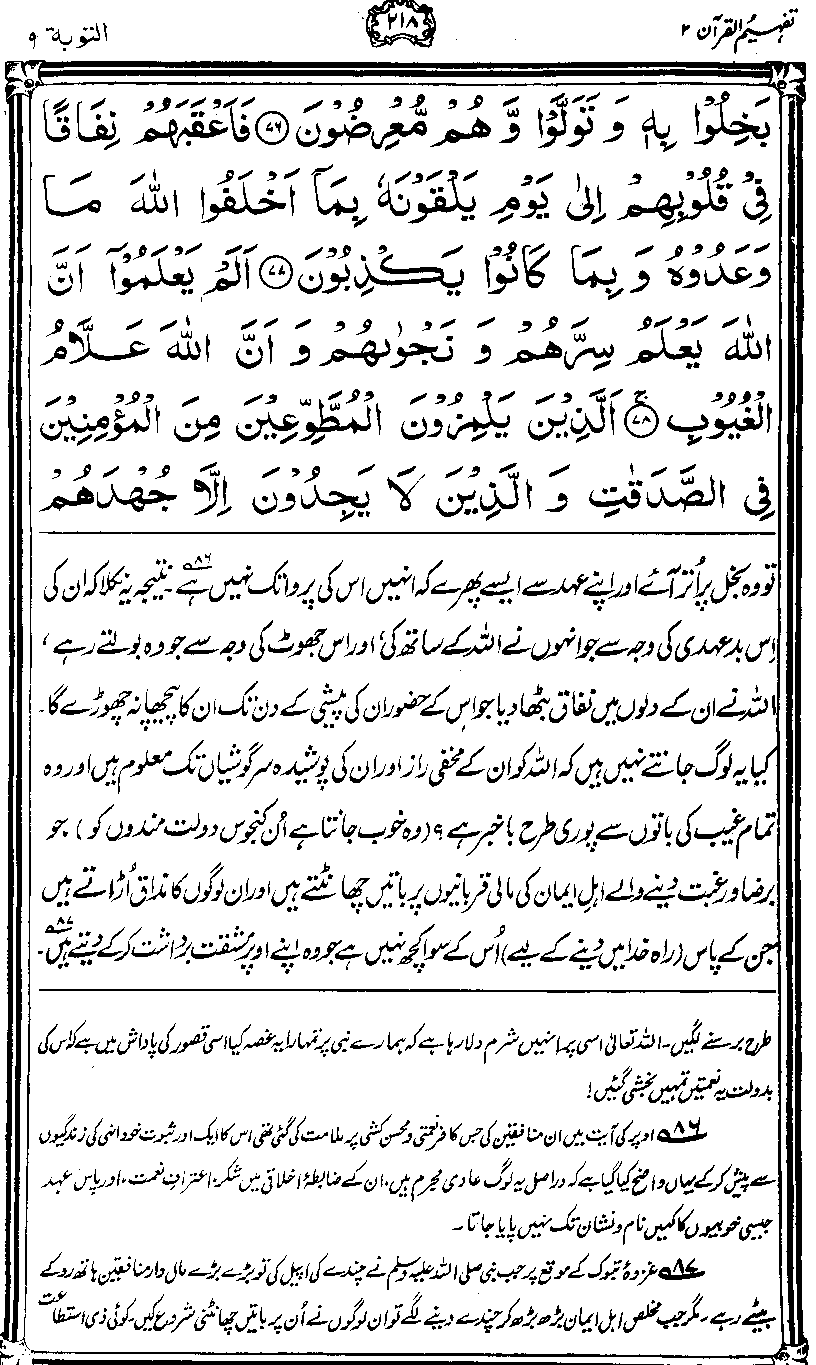 تفہیم القرآن ۲
۲۱۸
التوبة ۹
بَخِلُوْا بِهٖ وَ تَوَلَّوْا وَّ هُمْ مُّعْرِضُوْنَ ﴿۷۶﴾ فَاَعْقَبَهُمْ نِفَاقًا
فِیْ قُلُوْبِهِمْ اِلٰی یَوْمِ یَلْقَوْنَهٗ بِمَاۤ اَخْلَفُوا اللّٰهَ مَا
وَعَدُوْهُ وَ بِمَا كَانُوْا یَكْذِبُوْنَ ﴿۷۷﴾ اَلَمْ یَعْلَمُوْۤا اَنَّ
اللّٰهَ یَعْلَمُ سِرَّهُمْ وَ نَجْوٰىهُمْ وَ اَنَّ اللّٰهَ عَلَّامُ
الْغُیُوْبِ ﴿۷۸﴾ۚ اَلَّذِیْنَ یَلْمِزُوْنَ الْمُطَّوِّعِیْنَ مِنَ الْمُؤْمِنِیْنَ
فِی الصَّدَقٰتِ وَ الَّذِیْنَ لَا یَجِدُوْنَ اِلَّا جُهْدَهُمْ
تو وہ بخل پر اُتر آئے اور اپنے عہد سے ایسے پھرے کہ انہیں اس کی پروا تک نہیں ہے۸۶۔ نتیجہ یہ نکلا کہ ان کی
اِس بدعہدی کی وجہ سے جو انہوں نے اللہ کے ساتھ کی، اور اس جھوٹ کی وجہ سے جو وہ بولتے رہے،
اللہ نے ان کے دلوں میں نفاق بٹھا دیا جو اس کے حضور ان کی پیشی کے دن تک ان کا پیچھا نہ چھوڑے گا۔
کیا یہ لوگ جانتے نہیں ہیں کہ اللہ کو ان کے مخفی راز اور ان کی پوشیدہ سرگوشیاں تک معلوم ہیں اور وہ
تمام غیب کی باتوں سے پوری طرح باخبر ہے؟ (وہ خوب جانتا ہے اُن کنجوس دولت مندوں کو) جو
برضا و رغبت دینے والے اہلِ ایمان کی مالی قربانیوں پر باتیں چھانٹتے ہیں اور ان لوگوں کا مذاق اُڑاتے ہیں
جن کے پاس (راہ خدا میں دینے کے لیے) اُس کے سوا کچھ نہیں ہے جو وہ اپنے اوپر مشقت برداشت کر کے دیتے ہیں۸۷۔
طرح برسنے لگیں۔ اللہ تعالیٰ اسی پر انہیں شرم دلا رہا ہے کہ ہمارے نبی پر تمہارا یہ غصہ کیا اسی قصور کی پاداش میں ہے کہ اس کی
بدولت یہ نعمتیں تمہیں بخشی گئیں!
۸۶ اوپر کی آیت میں ان منافقین کی جس کافر نعمتی و محسن کشی پر ملامت کی گئی تھی اس کا ایک اور ثبوت خود انہی کی زندگیوں
سے پیش کر کے یہاں واضح کیا گیا ہے کہ دراصل یہ لوگ عادی مجرم ہیں، ان کے ضابطۂ اخلاق میں شکر، اعترافِ نعمت، اور پاس عہد
جیسی خوبیوں کا کہیں نام و نشان تک نہیں پایا جاتا۔
۸۷ غزوۂ تبوک کے موقع پر جب نبی صلی اللہ علیہ وسلم نے چندے کی اپیل کی تو بڑے بڑے مال دار منافقین ہاتھ روکے
بیٹھے رہے۔ مگر جب مخلص اہل ایمان بڑھ بڑھ کر چندے دینے لگے تو ان لوگوں نے اُن پر باتیں چھانٹنی شروع کیں۔ کوئی ذی استطاعت